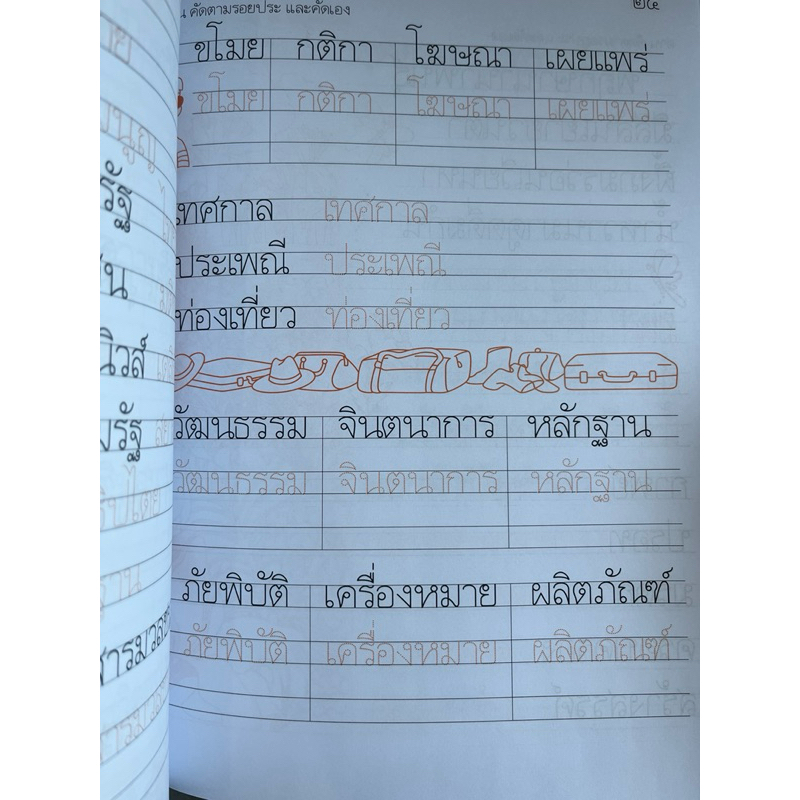 คัดตามรอยประ และคัดเอง ๒๕
ขโมย กติกา โฆษณา เผยแพร่
ขโมย กติกา โฆษณา เผยแพร่
เทศกาล เทศกาล
ประเพณี ประเพณี
ท่องเที่ยว ท่องเที่ยว
วัฒนธรรม จินตนาการ หลักฐาน
วัฒนธรรม จินตนาการ หลักฐาน
ภัยพิบัติ เครื่องหมาย ผลิตภัณฑ์
ภัยพิบัติ เครื่องหมาย ผลิตภัณฑ์